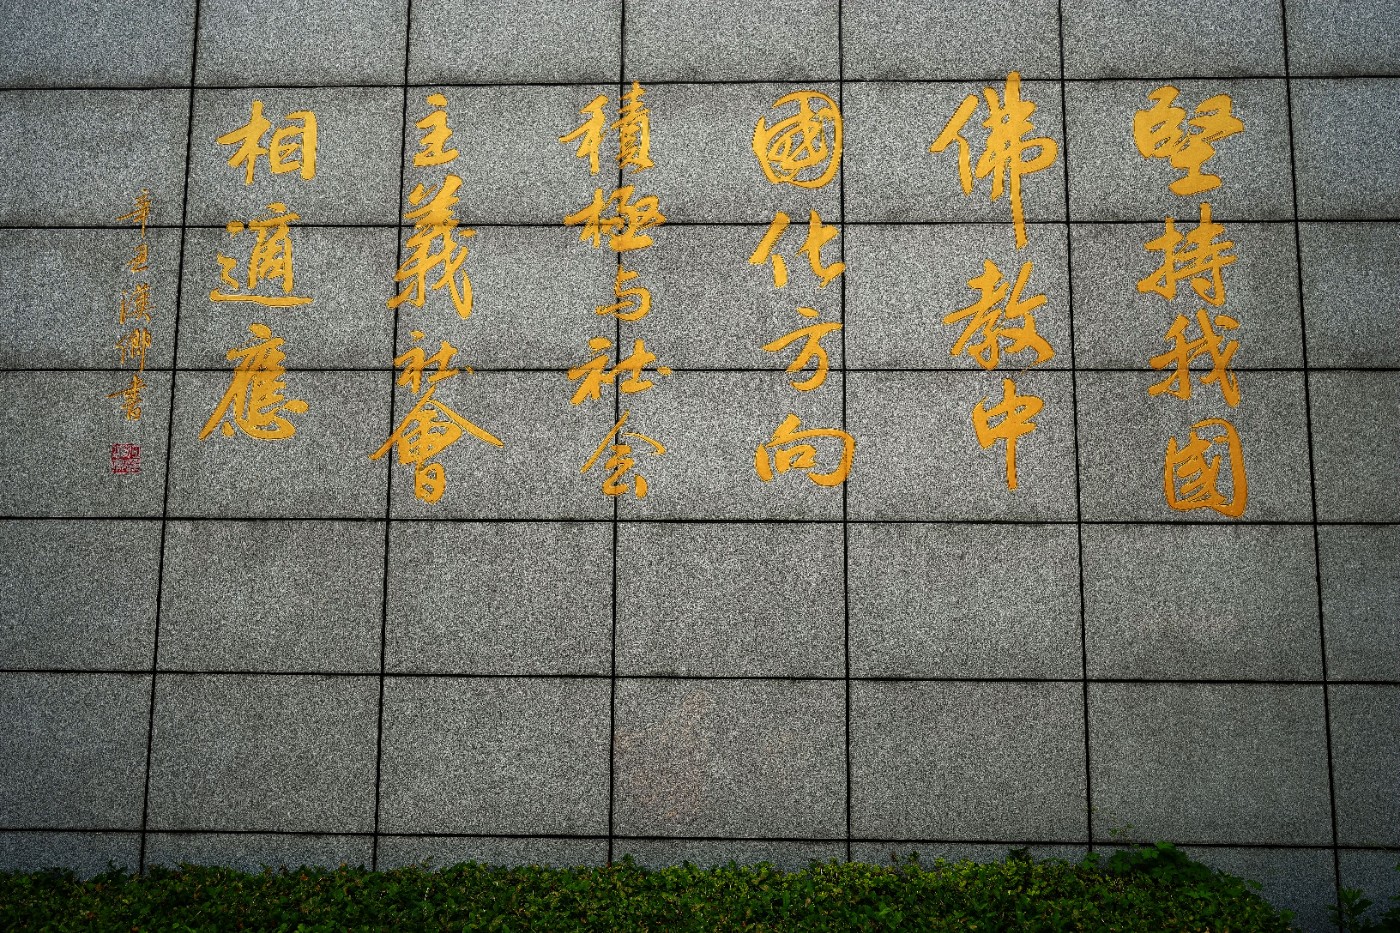 堅持我國
佛教中
國化方向
積極与社会
主義社會
相適應
辛丑漢卿書